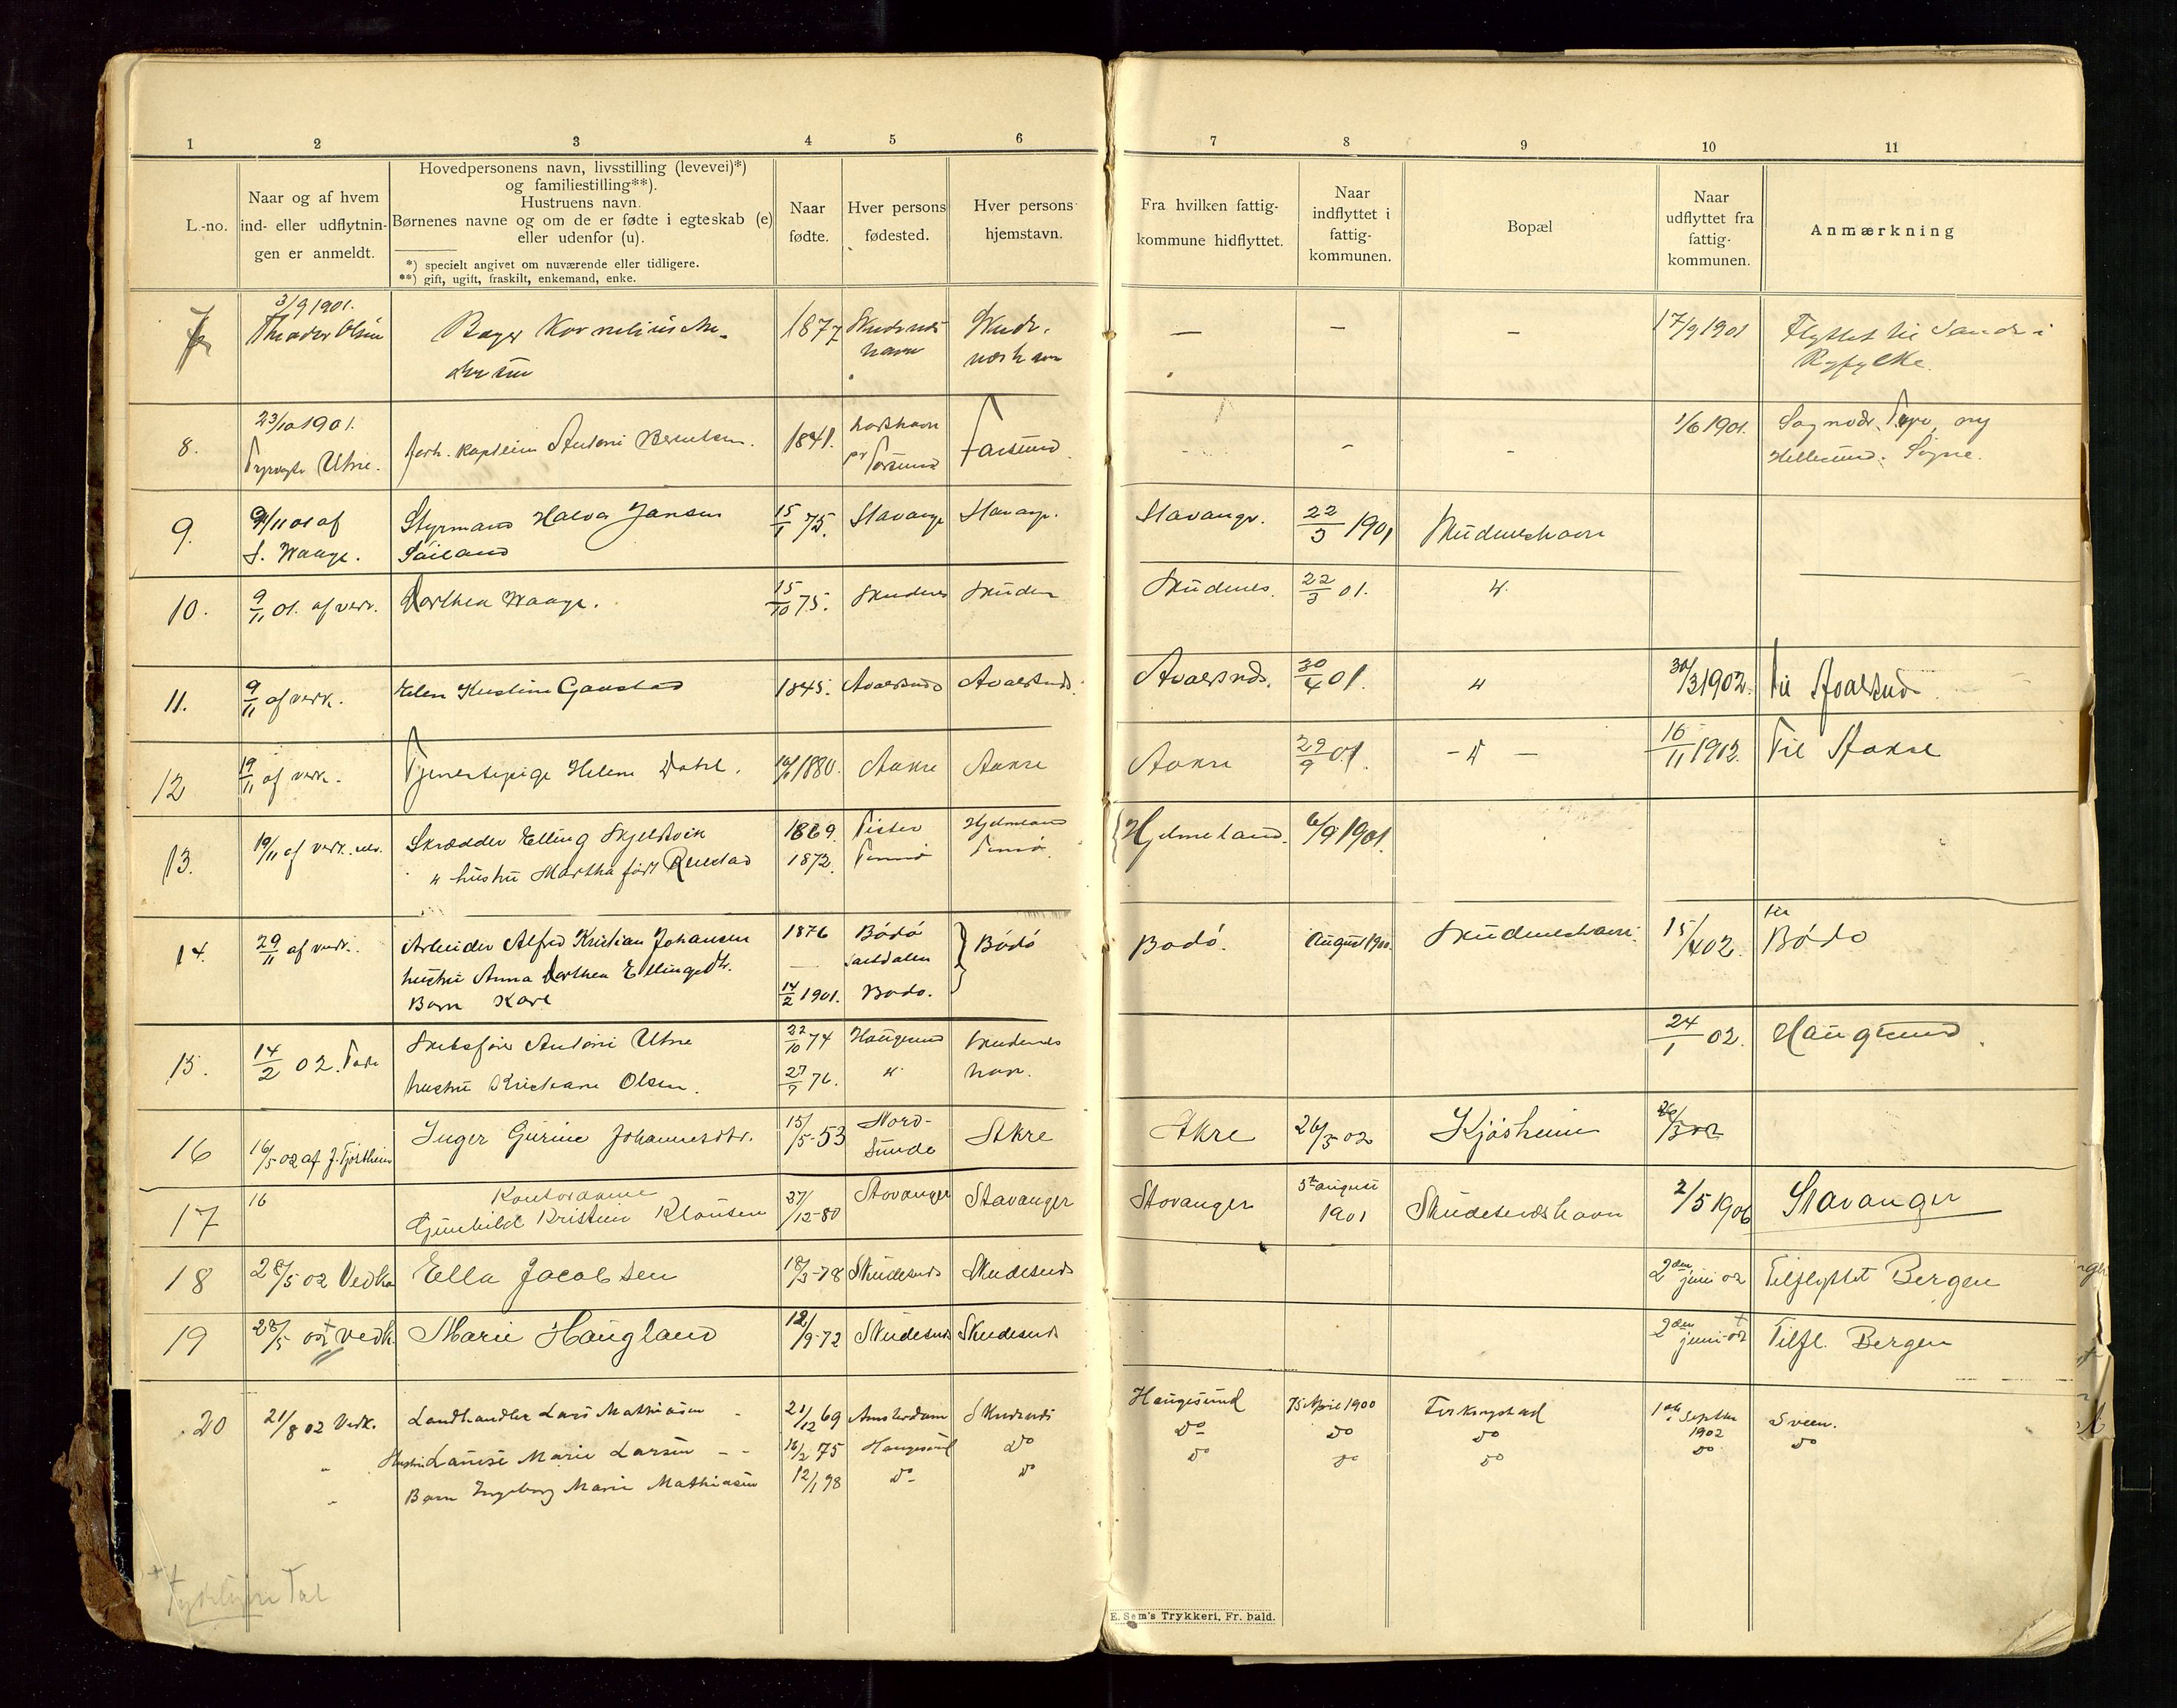 1 2 3 4 5 6 7 8 9 10 11
L.-no.
Naar og af hvem
ind- eller udflytnin-
gen er anmeldt.
Hovedpersonens navn, livsstilling (levevei)*)
og familiestilling**).
Hustruens navn.
Børnenes navne og om de er fødte i egteskab (e)
eller udenfor (u).
*) specielt angivet om nuværende eller tidligere.
**) gift, ugift, fraskilt, enkemand, enke.
Naar
fødte.
Hver persons
fødested.
Hver persons
hjemstavn.
Fra hvilken fattig-
kommune hidflyttet.
Naar
indflyttet i
fattig-
kommunen.
Bopæl
Naar
udflyttet fra
fattig-
kommunen.
Anmærkning
7 3/9 1901. Bager Kornelius 1877 17/9 1901 Flyttet til Sande i
Theodor Olsen Ryfylke.
8. 23/10 1901. forh. kaptein Antoni Berntsen. 1841. Farsund 1/6 1901.
Utne. Hellesund. Søgne.
9. 9/11 01 af Styrmand Halvor Jansen 15/1 75. Stavanger Stavanger. Stavanger. 22/3 1901 Skudeneshavn
S. Waage.
10. 9/11 01. af verk. Dorthea Waage. 15/10 75. Skudenes Skuden Skudenes. 22/3 01. "
11. 9/11 af vedk. Elen Kristine Gaustad 1845. Avaldsnds Avaldsnds. Avaldsnds. 30/4 01. " 30/3 1902. Til Avaldsnd.
12 19/11 af vedk. Tjenestepige Helene Dahl. 1880. Aakre Aakre Aakre 29/9 01. - " - 16/11 1902. Til Aakre
13. 19/11 af vedk. Skrædder Elling Skjelsvik 1869. Fister Hjelmeland Hjelmeland. 6/9 1901.
" hustru Martha født 1872.
14. 29/11 af vedk. Arbeider Alfred Kristian Johansen 1876 Bódó Bódó Bodó. August 1900. Skudeneshavn. 15/4 02. til Bódo
hustru Anna Dorthea Ellingsdtr. — Saltdalen
Barn Karl 14/2 1901. Bodo.
15. 14/2 02. Skibsfører Antoni Utne 22/10 74 Haugesund Skudenes 24/1 02. Haugesund.
hustru Kristiane Olsen. 27/7 76. " havn.
16 16/5 02 af J. Tjøstheim Inger Gurine Johannesdtr. 15/5-53 Nord- Akre Akre 26/3 02 Kjósheim
Sunde
17 16 Kontordame 27/12-80 Stavanger Stavanger Stavanger 5te august Skudesneshavn 2/5 1906 Stavanger
Gunhild Kristine Klausen 1901
18 28/5 02 Vedk Ella Jacobsen 18/3-78 Skudesnds Skudesnds 2den juni 02 Tilflyttet Bergen
19 28/5 02 vedk. Marie Haugland 12/9-72 Skudesnds Skudesnds 2den juni-02 Tilfl. Bergen
20 21/8 02 Vedk. Landhandler Lars Mathiasen 21/12 69 Amsterdam Skudenes Haugesund 15 April 1900 Ferkingstad 1ste Septbr 1902 Sveen.
" Hustru Lauise Marie Larsen - - 16/2 75 Haugesund Do Do Do Do Do Do
" Barn Ingeborg Marie Mathiasen 12/1 98 Do Do Do Do Do
Tydeligere Tal
E. Sem's Trykkeri, Fr. hald.